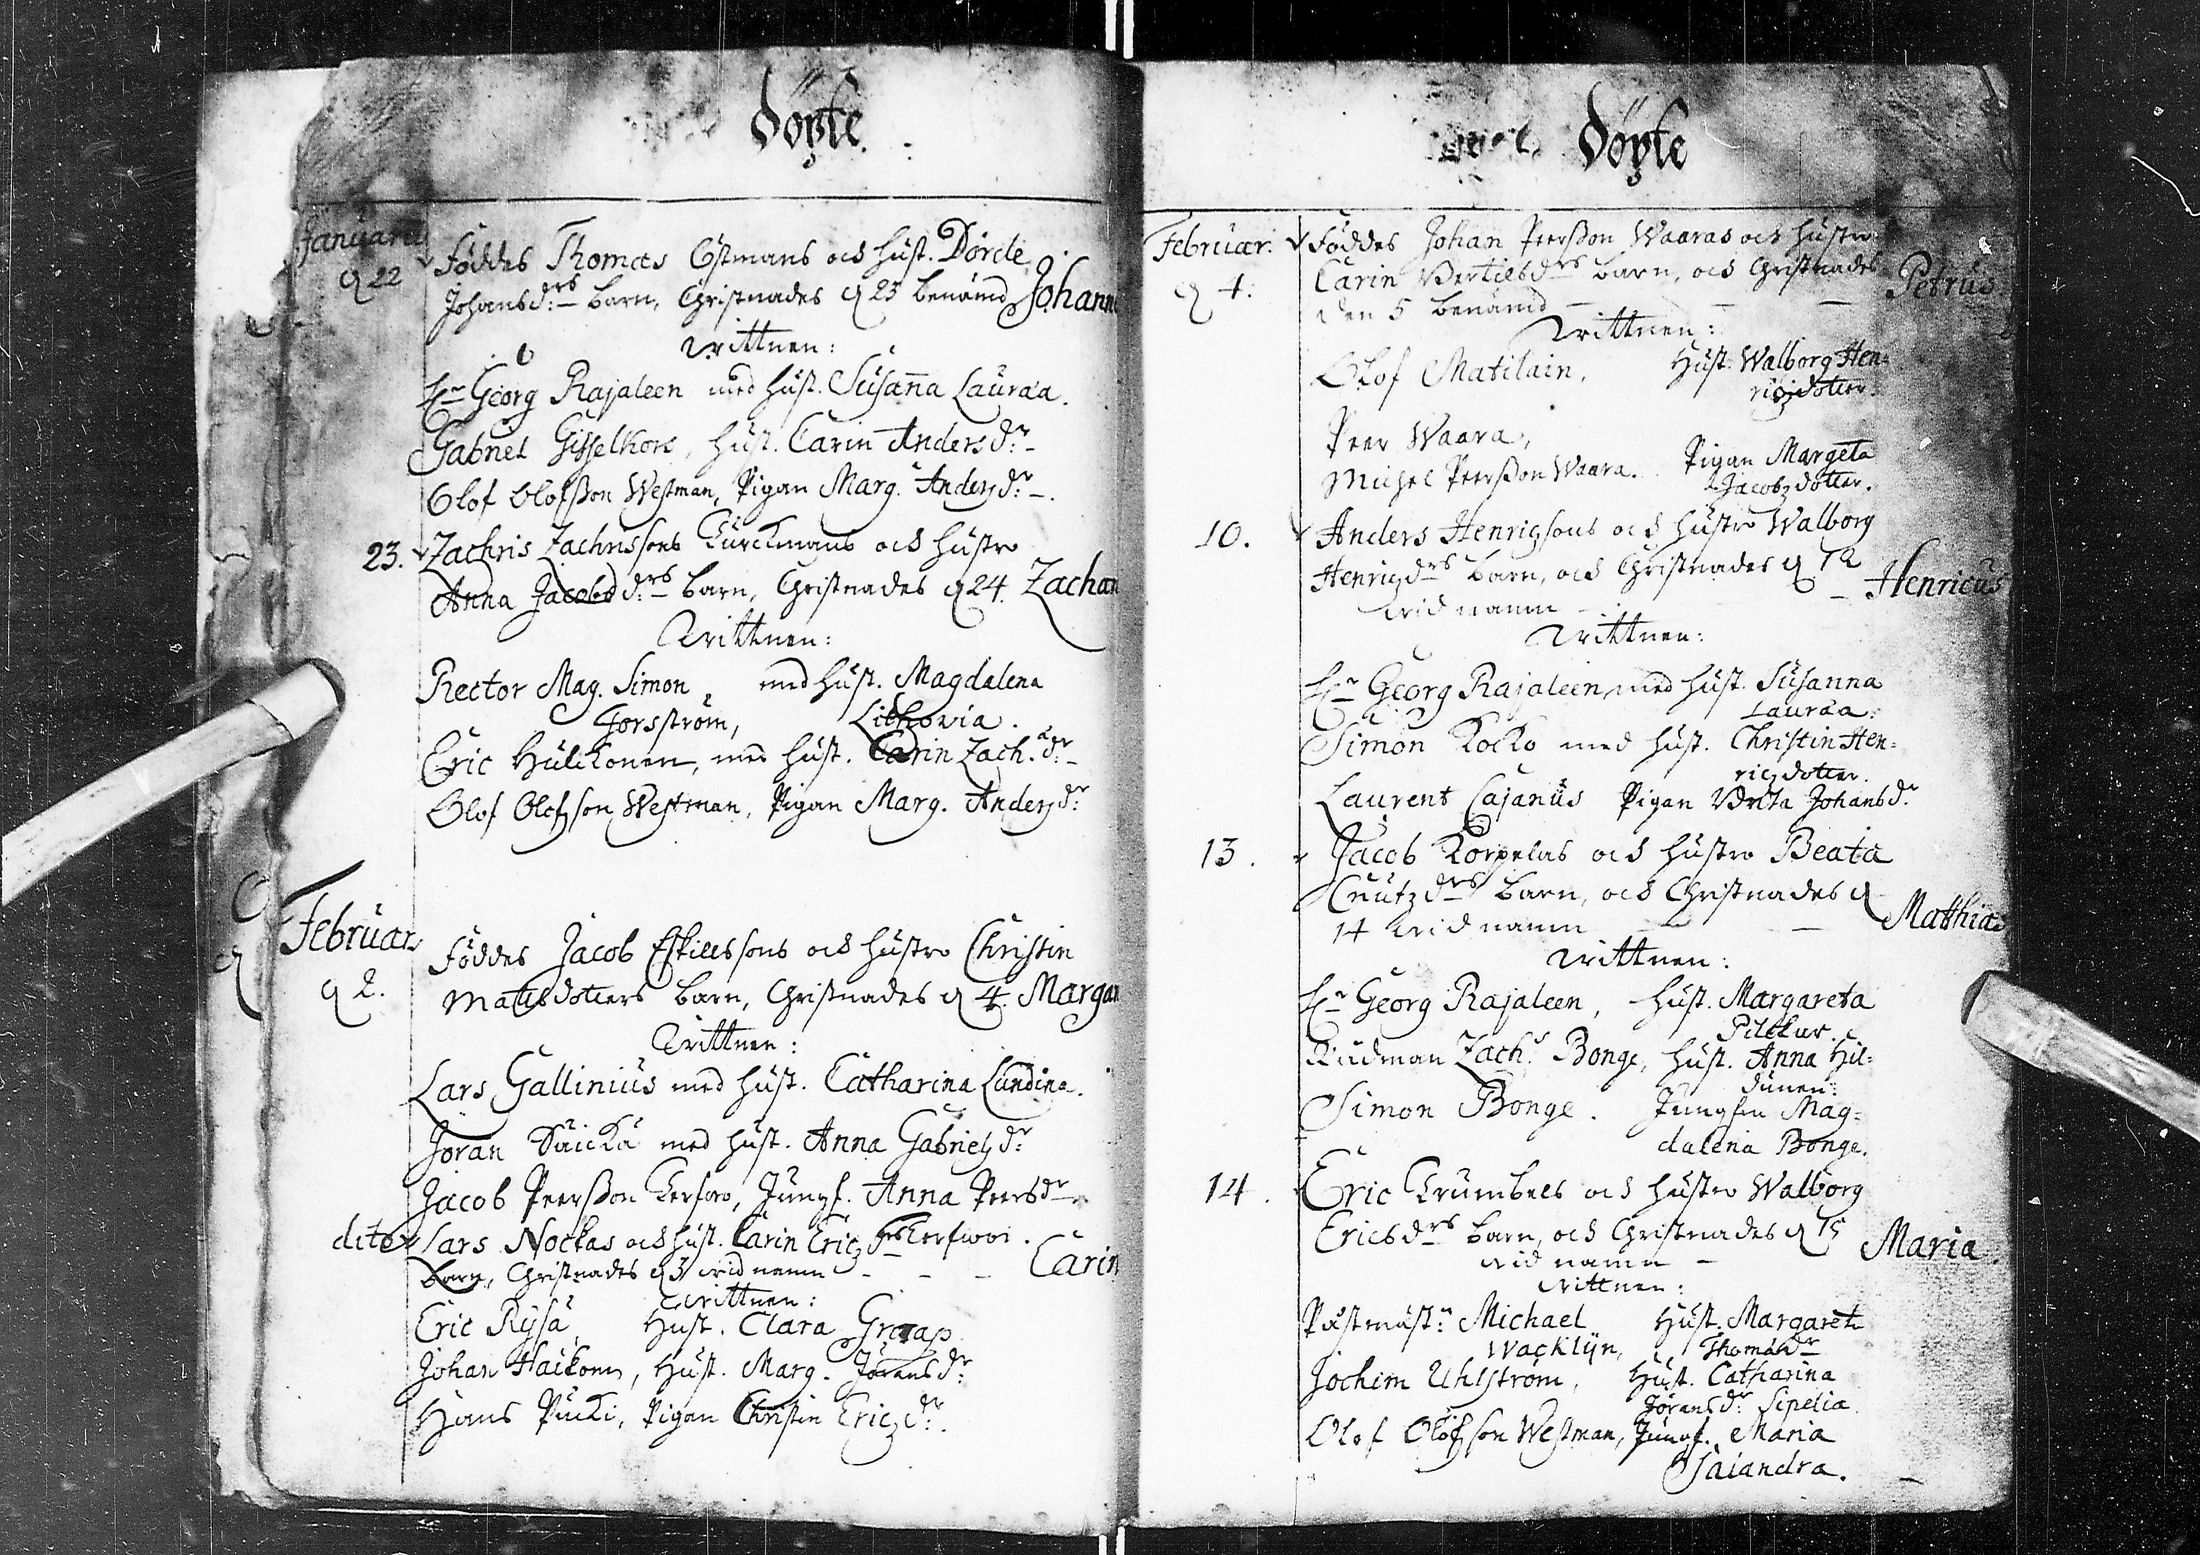 Döpte.
Januarii
d 22
Föddes Thomas Östmans och hust. Dorde
Johansdrs barn, Christnades d 23 benämd Johann
Wittnen:
Hr Georg Rajaleen med hust. Susanna Lauraa.
Gabriel Gisselkors, hust. Carin Andersdr
Olof Olofsson Westman, Pigan Marg. Andersdr.
23. Zachris Zachrissons Kurckmans och hustro
Anna Jacobsdrs barn, Christnades d 24. Zachari
Wittnen:
Rector Mag. Simon med hust. Magdalena
Forsström, Lithovia.
Eric Hulckonen, med hust. Carin Zach.dr
Olof Olofsson Westman, Pigan Marg. Andersdr
Februar
d 2.
Föddes Jacob Eskilssons och hustro Christin
Matsdotters barn, Christnades d 4. Margar
Wittnen:
Lars Gallinius med hust. Catharina Lundina.
Jöran Säickä med hust. Anna Gabrielsdr
Jacob Peersson Kerforo, Jungf. Anna Peersdr
dito Lars Nockas och hust. Carin Ericsdrs
barn, Christnades d 3 wid namn - - - Carin
Wittnen:
Eric Rysä, Hust. Clara Graap
Johan Haikonen, Hust. Marg. Jöransdr
Hans Pucki, Pigan Christin Ericsdr.
Döpte
Februar:
d 4.
Föddes Johan Peersson Waaras och hustro
Carin Bertilsdrs barn, och Christnades
den 5 benämd — — — Petrus
Wittnen:
Olof Matilain, Hust. Walborg Hen=
ricsdotter.
Peer Waara,
Michel Peersson Waara. Pigan Margeta
Jacobsdotter.
10. Anders Henricssons och hustro Walborg
Henricsdrs barn, och Christnades d 12
wid namn - - Henricus
Wittnen:
Hr Georg Rajaleen, med hust. Susanna
Lauraa.
Simon Kocko med hust. Christin Hen=
ricsdotter.
Laurent Cajanus Pigan Brita Johansdr
13. Jacob Korpelas och hustro Beata
Cnutzdrs barn, och Christnades d
14 wid namn — — Matthias
Wittnen:
Hr Georg Rajaleen, hust. Margareta
Pilckar.
Rudman Zachs Bonge, hust. Anna Hil=
dunen:
Simon Bonge. Jungfru Mag=
dalena Bonge.
14. Eric Krumbels och hustro Walborg
Ericsdrs barn, och Christnades d 15
wid namn - Maria
Wittnen:
Påstmästr Michael Hust. Margareta
Wacklijn, Thomasdr
Jochim Uhlström, Hust. Catharina
Jöransdr Sipelia
Olof Olofsson Westman, Jungf. Maria
Saiandra.